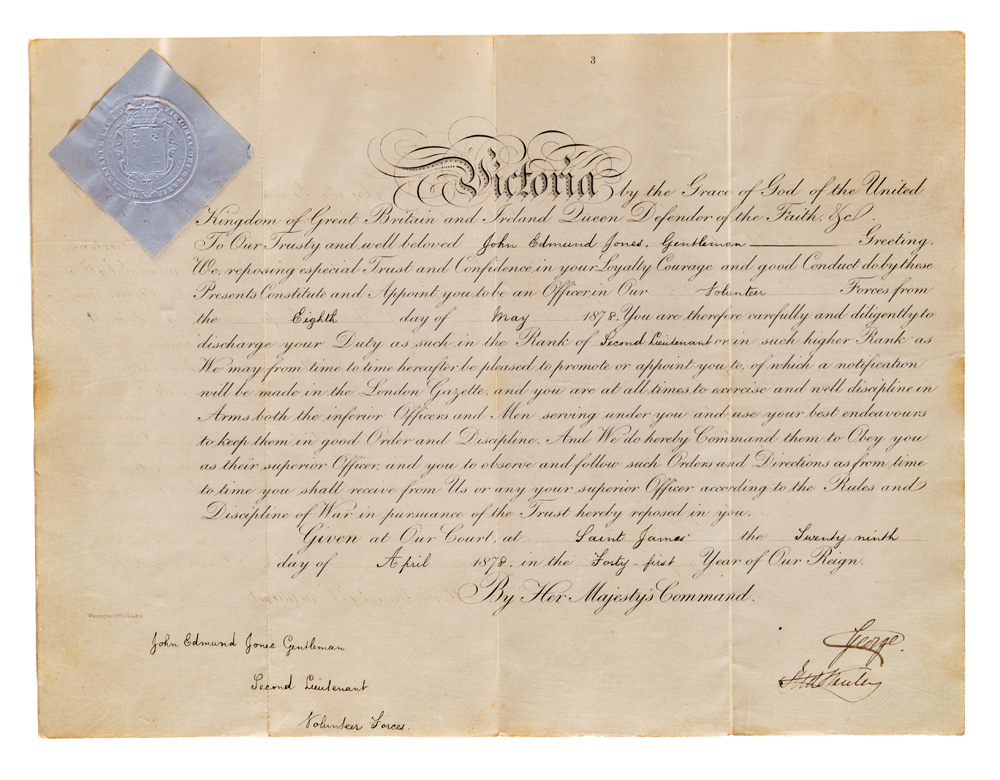 3
Victoria by the Grace of God of the United
Kingdom of Great Britain and Ireland Queen Defender of the Faith, &c.
To Our Trusty and well beloved John Edmund Jones, Gentleman Greeting.
We, reposing especial Trust and Confidence in your Loyalty Courage and good Conduct do by these
Presents Constitute and Appoint you to be an Officer in Our Volunteer Forces from
the Eighth day of May 1878. You are therefore carefully and diligently to
discharge your Duty as such in the Rank of Second Lieutenant or in such higher Rank as
We may from time to time hereafter be pleased to promote or appoint you to, of which a notification
will be made in the London Gazette, and you are at all times to exercise and well discipline in
Arms both the inferior Officers and Men serving under you and use your best endeavours
to keep them in good Order and Discipline. And We do hereby Command them to Obey you
as their superior Officer, and you to observe and follow such Orders and Directions as from time
to time you shall receive from Us or any your superior Officer according to the Rules and
Discipline of War in pursuance of the Trust hereby reposed in you.
Given at Our Court, at Saint James' the Twenty ninth
day of April 1878, in the Forty-first Year of Our Reign.
By Her Majesty's Command.
John Edmund Jones Gentleman
Second Lieutenant
Volunteer Forces.
George.